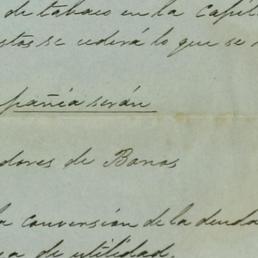 de tabaco en la Capil
stos se cederá lo que se
pañía serán
dores de Bonos
la conversion de la deuda
a de utilidad.